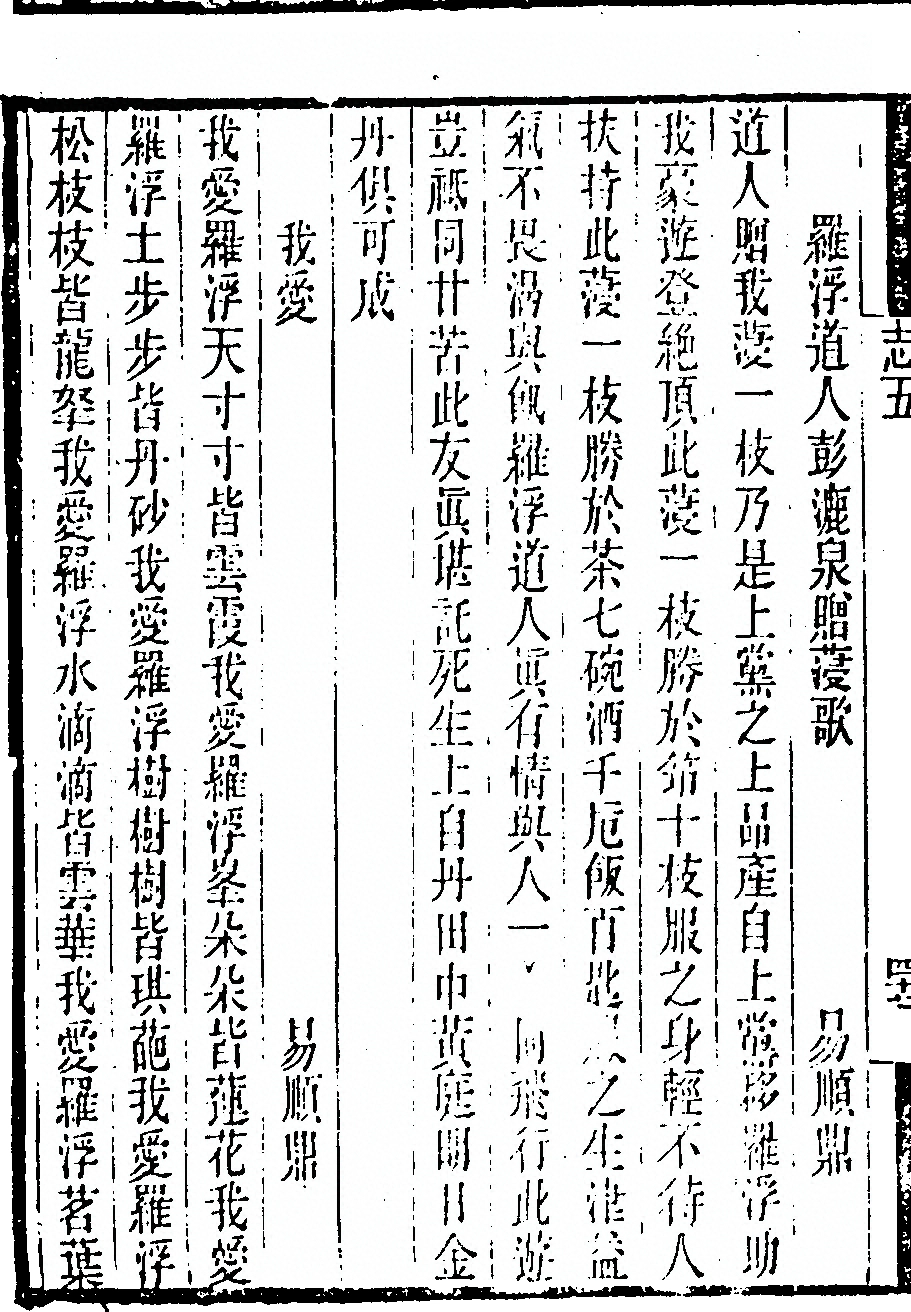 志五
羅浮道人彭漉泉贈蓡歌 易順鼎
道人贈我蓡一枝乃是上黨之上品產自上黨移羅浮助
我豪遊登絶頂此蓡一枝勝於筇十枝服之身輕不待人
扶持此蓡一枝勝於茶七碗酒千巵飯百匙 之生津益
氣不畏渴與飢羅浮道人眞有情與人一 同飛行此遊
豈祗同甘苦此友眞堪託死生上自丹田中黃庭明日金
丹俱可成
我愛 易順鼎
我愛羅浮天寸寸皆雲霞我愛羅浮峯朵朵皆蓮花我愛
羅浮土步步皆丹砂我愛羅浮樹樹樹皆琪葩我愛羅浮
松枝枝皆龍拏我愛羅浮水滴滴皆雲華我愛羅浮茗葉